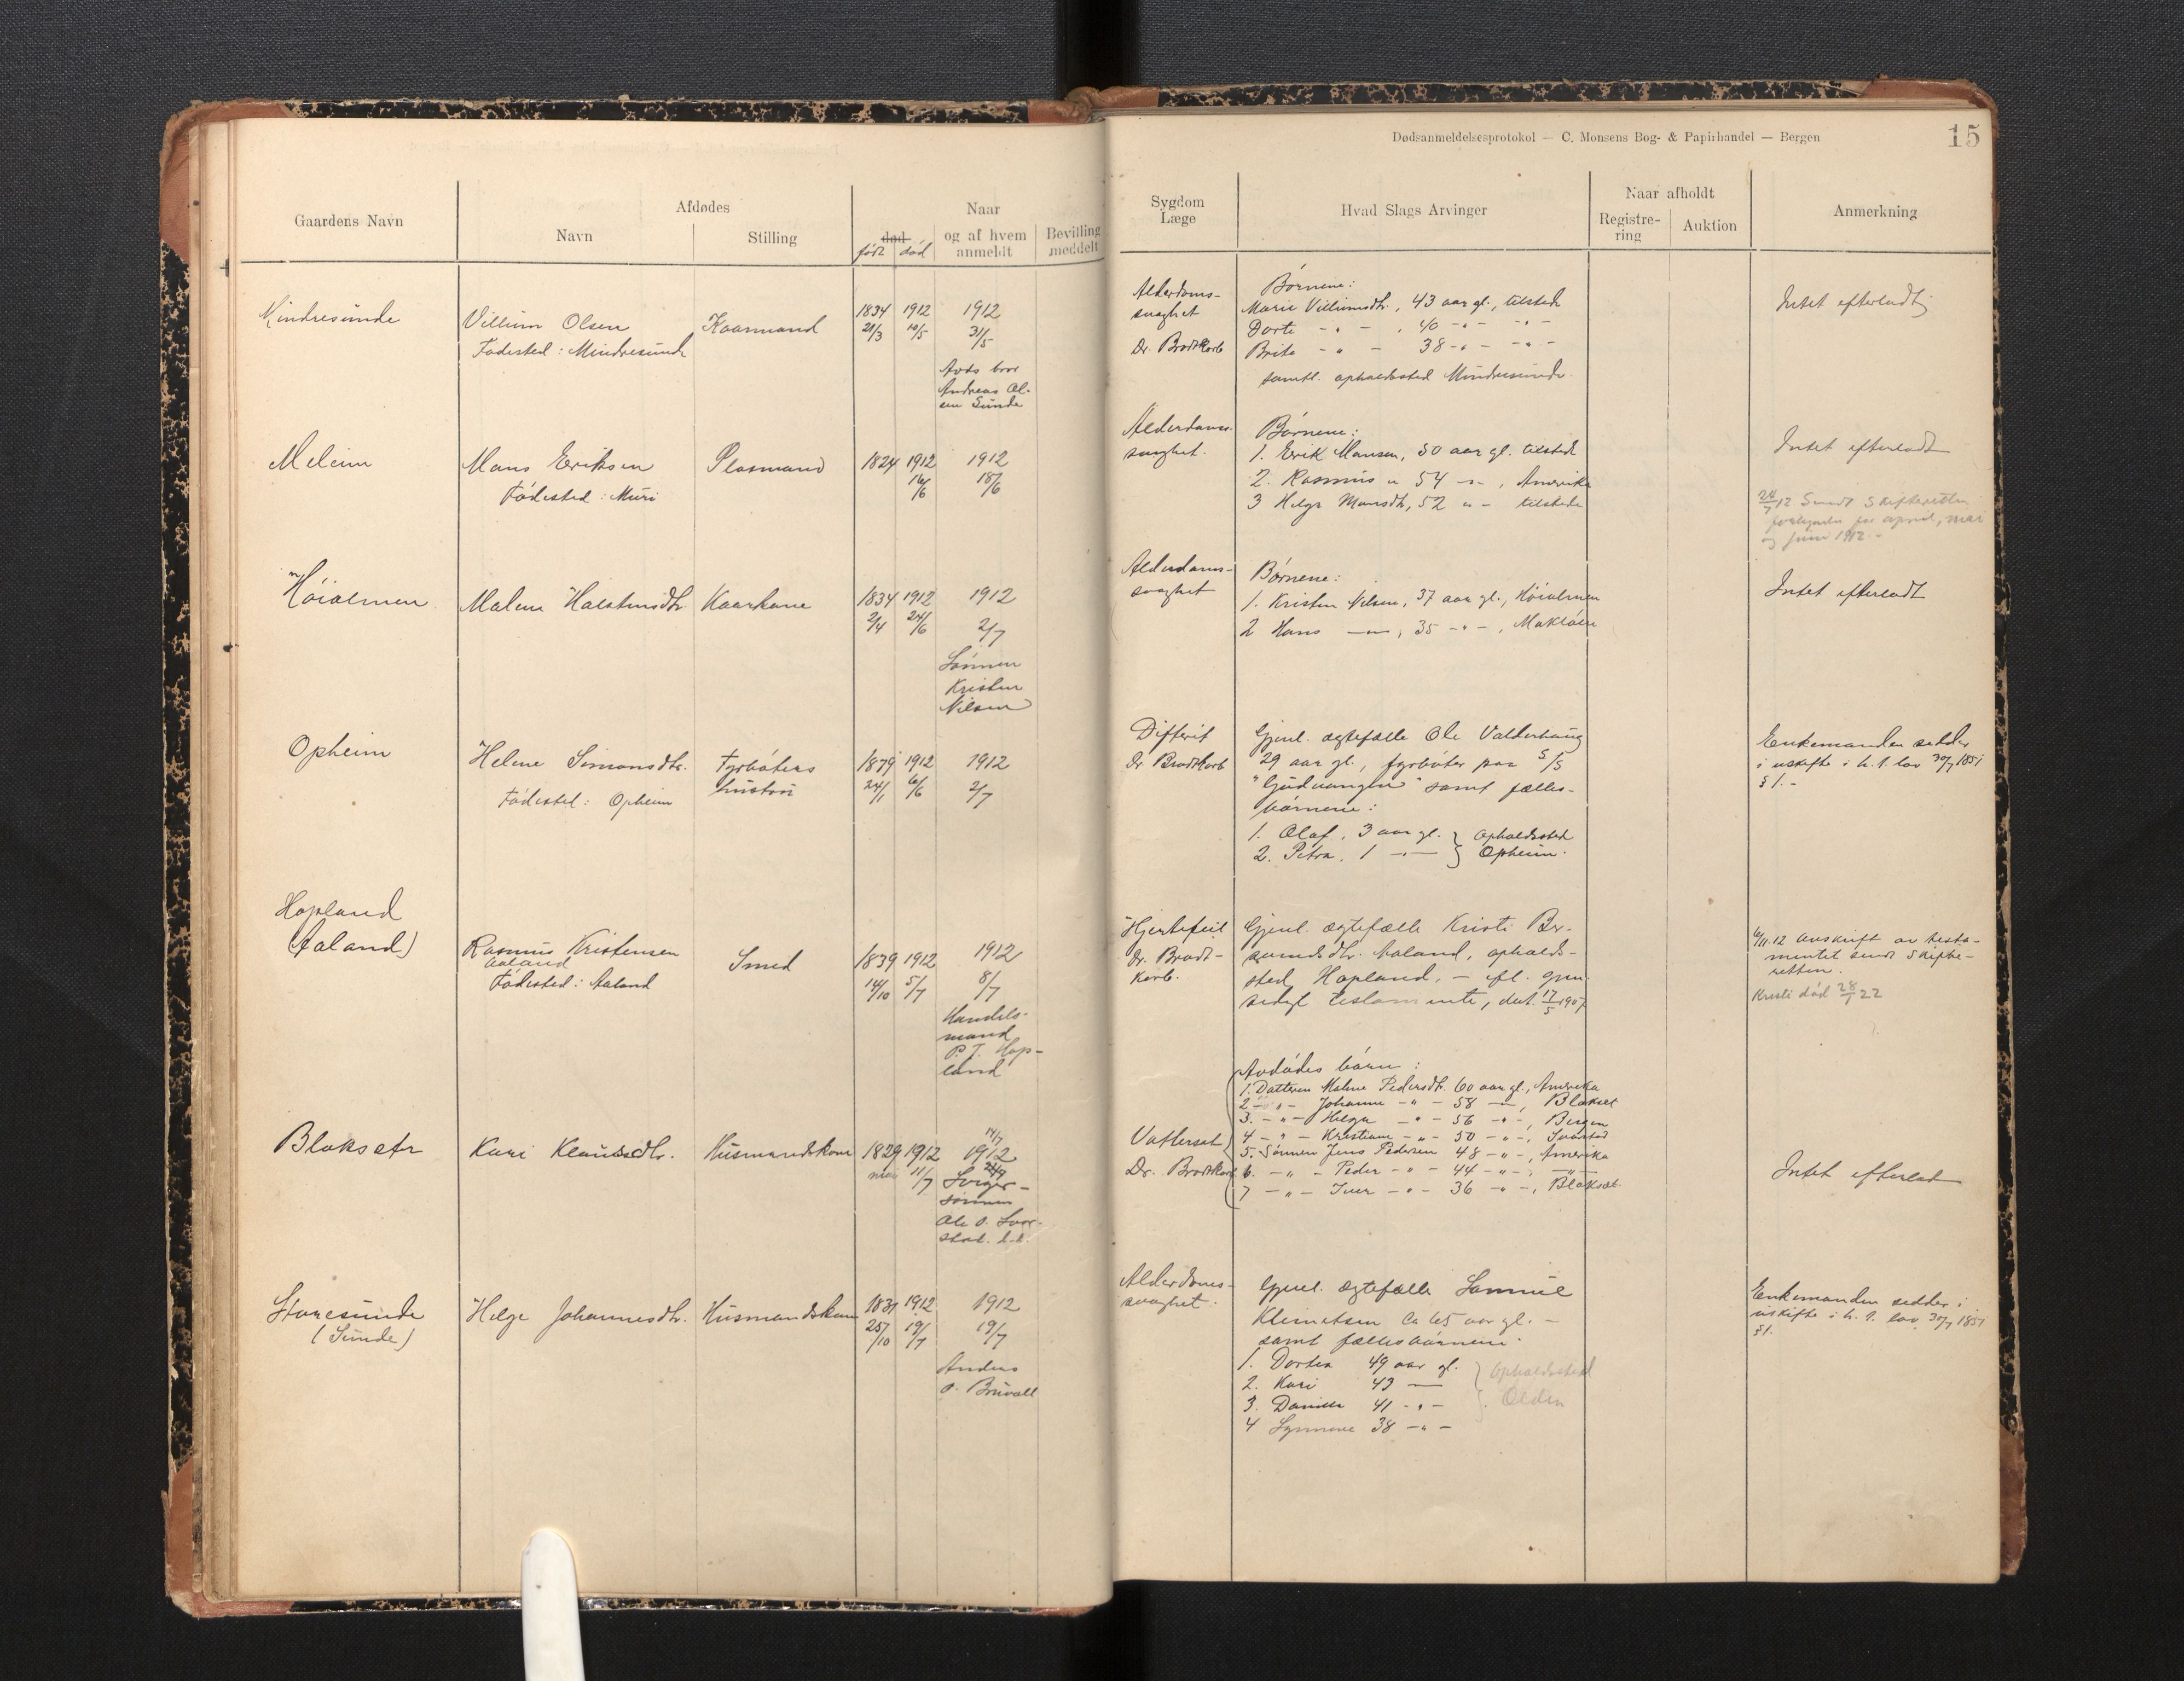 Dødsanmeldelsesprotokol — C. Monsens Bog- & Papirhandel — Bergen
15
Gaardens Navn
Afdødes
Navn
Stilling
Naar
død
født død
og af hvem
anmeldt
Bevilling
meddelt
Sygdom
Læge
Hvad Slags Arvinger
Naar afholdt
Registre-
ring
Auktion
Anmerkning
Mindresunde
Villum Olsen
Fødested: Mindresunde
Kaarmand
1834 1912 1912
21/3 10/5 31/5
Avds bror
Andreas Ol-
sen Sunde
Alderdoms-
svaghet
Dr. Brodtkorb
Børnene:
Marie Villumsdtr., 43 aar gl., tilstede
Dorte - " - , 40 - " - - " -
Brite - " - 38 - " - - " -
samtl. opholdssted Mindresunde.
Intet efterladt
Meleim
Mons Eriksen
Fødested: Muri
Plasmand
1824 1912 1912
16/6 18/6
Alderdoms-
svaghet.
Børnene:
1. Erik Monsen, 50 aar gl. tilstede
2. Rasmus " 54 - " - , Amerika
3 Helge Monsdtr, 52 " - tilstede
Intet efterladt
24/7 12 Sendt Skifteretten
fortegnelse for april, mai
og juni 1912. -
Høialmen
Malene Halstensdtr.
Kaarkone
1834 1912 1912
2/4 24/6 2/7
Sønnen
Kristen
Nilsen
Alderdoms-
svaghet
Børnene:
1. Kristen Nilsen, 37 aar gl., Høialmen
2 Hans —"—, 35 - " - , Makløen
Intet efterladt
Opheim
Helene Simonsdtr.
Fødested: Opheim
Fyrbøters
hustru
1879 1912 1912
24/1 6/6 2/7
Difterit
Dr. Brodtkorb
Gjenl. ægtefælle Ole Valderhaug
29 aar gl., fyrbøter paa S/S
"Gudvangen" samt fælles-
børnene:
1. Olaf, 3 aar gl. } Opholdssted
2. Petra, 1 —"— } Opheim.
Enkemanden sidder
i uskifte i h. t. lov 30/7 1851
§ 1. -
Hopland
(Aaland)
Rasmus Kristensen
Aaland
Fødested: Aaland
Smed
1839 1912 1912
14/10 5/7 8/7
Handels-
mand
P. J. Hop-
land
Hjertefeil
Dr. Brodt-
korb.
Gjenl. ægtefælle Kristi Ras-
mundsdtr. Aaland, opholds-
sted Hopland, - ifl. gjen-
sidigt testamente, dat. 17/5 1907
6/11.12 avskrift av testa-
mentet sendt Skifte-
retten.
Kristi død 28/1 22
Blaksætr
Kari Klausdtr.
Husmandskone
1829 1912 1912
mai 11/7 14/7
Sviger-
sønnen
Ole O. Svor-
stad.
Vattersot
Dr. Brodtkorb
Avdødes børn:
1. Datteren Malene Pedersdtr. 60 aar gl., Amerika
2 - " - Johanne - " - 58 —"—, Blakset
3. - " - Helga - " - 56 - " -, Bergen
4 - " - Kristiane - " - 50 - " -, Svorstad
5. Sønnen Jens Pedersen 48 - " -, Amerika
6. - " - Peder - " - 44 - " - , —"—
7 - " - Iver - " - 36 - " -, Blakset.
Intet efterlat
Storesunde
(Sunde)
Helge Johannesdtr.
Husmandskone
1831 1912 1912
25/10 19/7 19/7
Anders
O. Bruvoll
Alderdoms-
svaghet.
Gjenl. ægtefælle Samuel
Klemetsen ca 65 aar gl. -
samt fællesbørnene:
1. Dortea 49 aar gl. } Opholdssted
2. Kari 43 —
3. Daniel 41 - " - } Olden
4 Synnøve 38 - " -
Enkemanden sidder i
uskifte i h. t. lov 30/7 1851
§1.